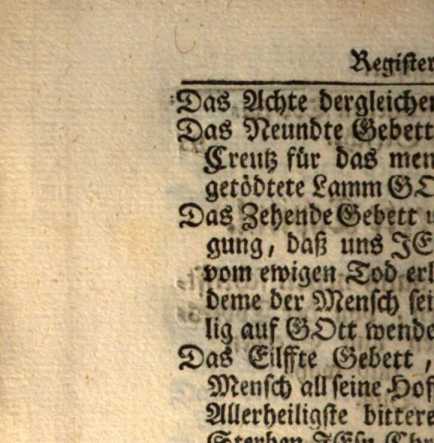 Register
Das Achte dergleichen
Das Neundte Gebett
Creutz für das men
getödtete Lamm GO
Das Zehende Gebett
gung, daß uns JE
vom ewigen Tod erl
deme der Mensch sei
lig auf GOtt wende
Das Eilffte Gebett,
Mensch all seine Hof
Allerheiligste bittere
Sterben JEsu Chr